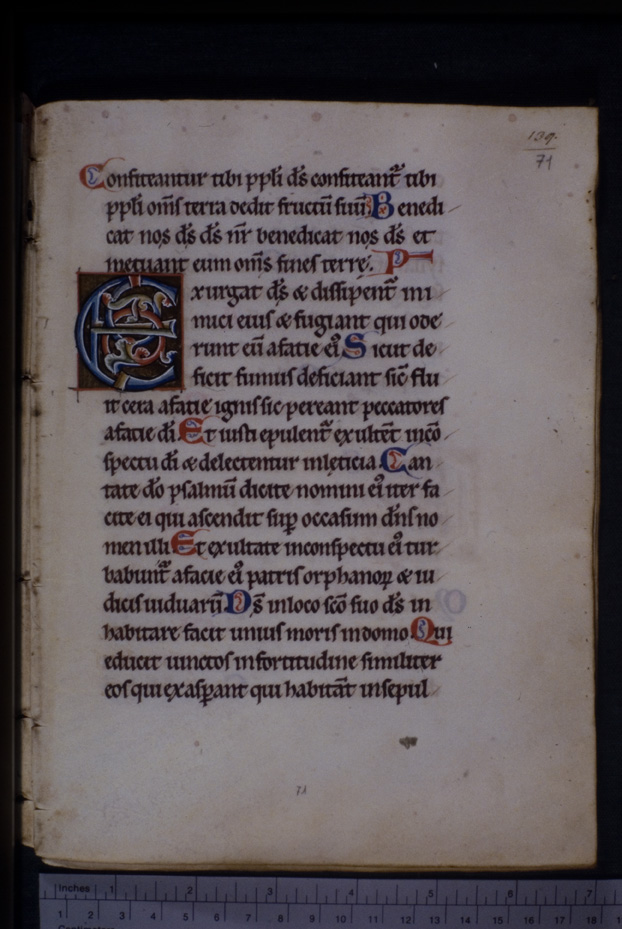 139.
71
Confiteantur tibi ppl̅i ds̅ confiteant᷑ tibi
ppl̅i om̅s terra dedit fructu̅ suu̅ Benedi
cat nos ds̅ ds̅ nr̅ benedicat nos ds̅ et
metuant eum om̅s fines terre. P
Exurgat ds̅ & dissipent᷑ ini
mici eius & fugiant qui ode
runt eu̅ afacie eiꝰ Sicut de
ficit fumus deficiant sic̅ flu
it cera afacie ignis sic pereant peccatores
afacie di̅ Et iusti epulent᷑ exultent̅ inco̅
spectu di̅ & delectentur inleticia Can
tate do̅ psalmu̅ dicite nomini eiꝰ iter fa
cite ei qui ascendit sup̅ occasum dn̅s no
men illi Et exultate inconspectu eiꝰ tur
babunt᷑ afacie eiꝰ patris orphanoꝝ & iu
dicis uiduaru̅ Ds̅ inloco sc̅o suo ds̅ in
habitare facit unius moris indomo Qui
educit uinctos infortitudine similiter
eos qui exasꝑant qui habita̅t insepul
71
Inches 1 2 3 4 5 6 7
1 2 3 4 5 6 7 8 9 10 11 12 13 14 15 16 17 18
Centimetres